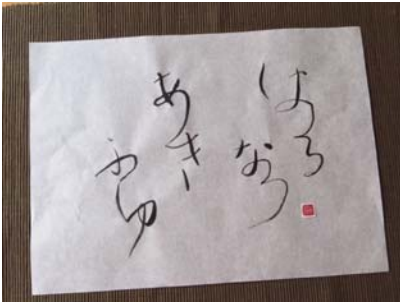 はる
なつ
あき
ふゆ